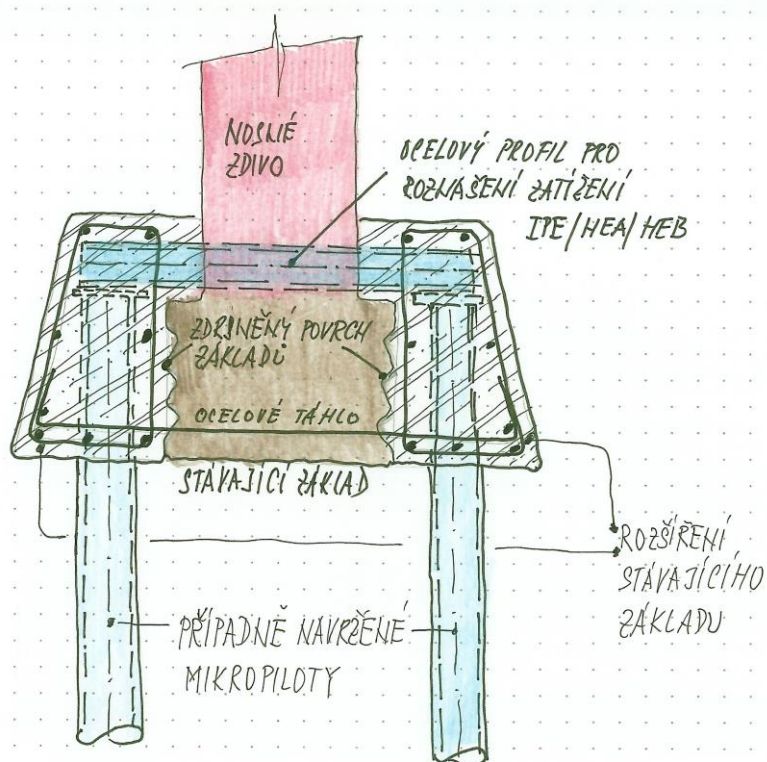 NOSNÉ
ZDIVO
OCELOVÝ PROFIL PRO
ROZNÁŠENÍ ZATÍŽENÍ
IPE/HEA/HEB
ZDRSNĚNÝ POVRCH
ZÁKLADŮ
OCELOVÉ TÁHLO
STÁVAJÍCÍ ZÁKLAD
ROZŠÍŘENÍ
STÁVAJÍCÍHO
ZÁKLADU
PŘÍPADNĚ NAVRŽENÉ
MIKROPILOTY